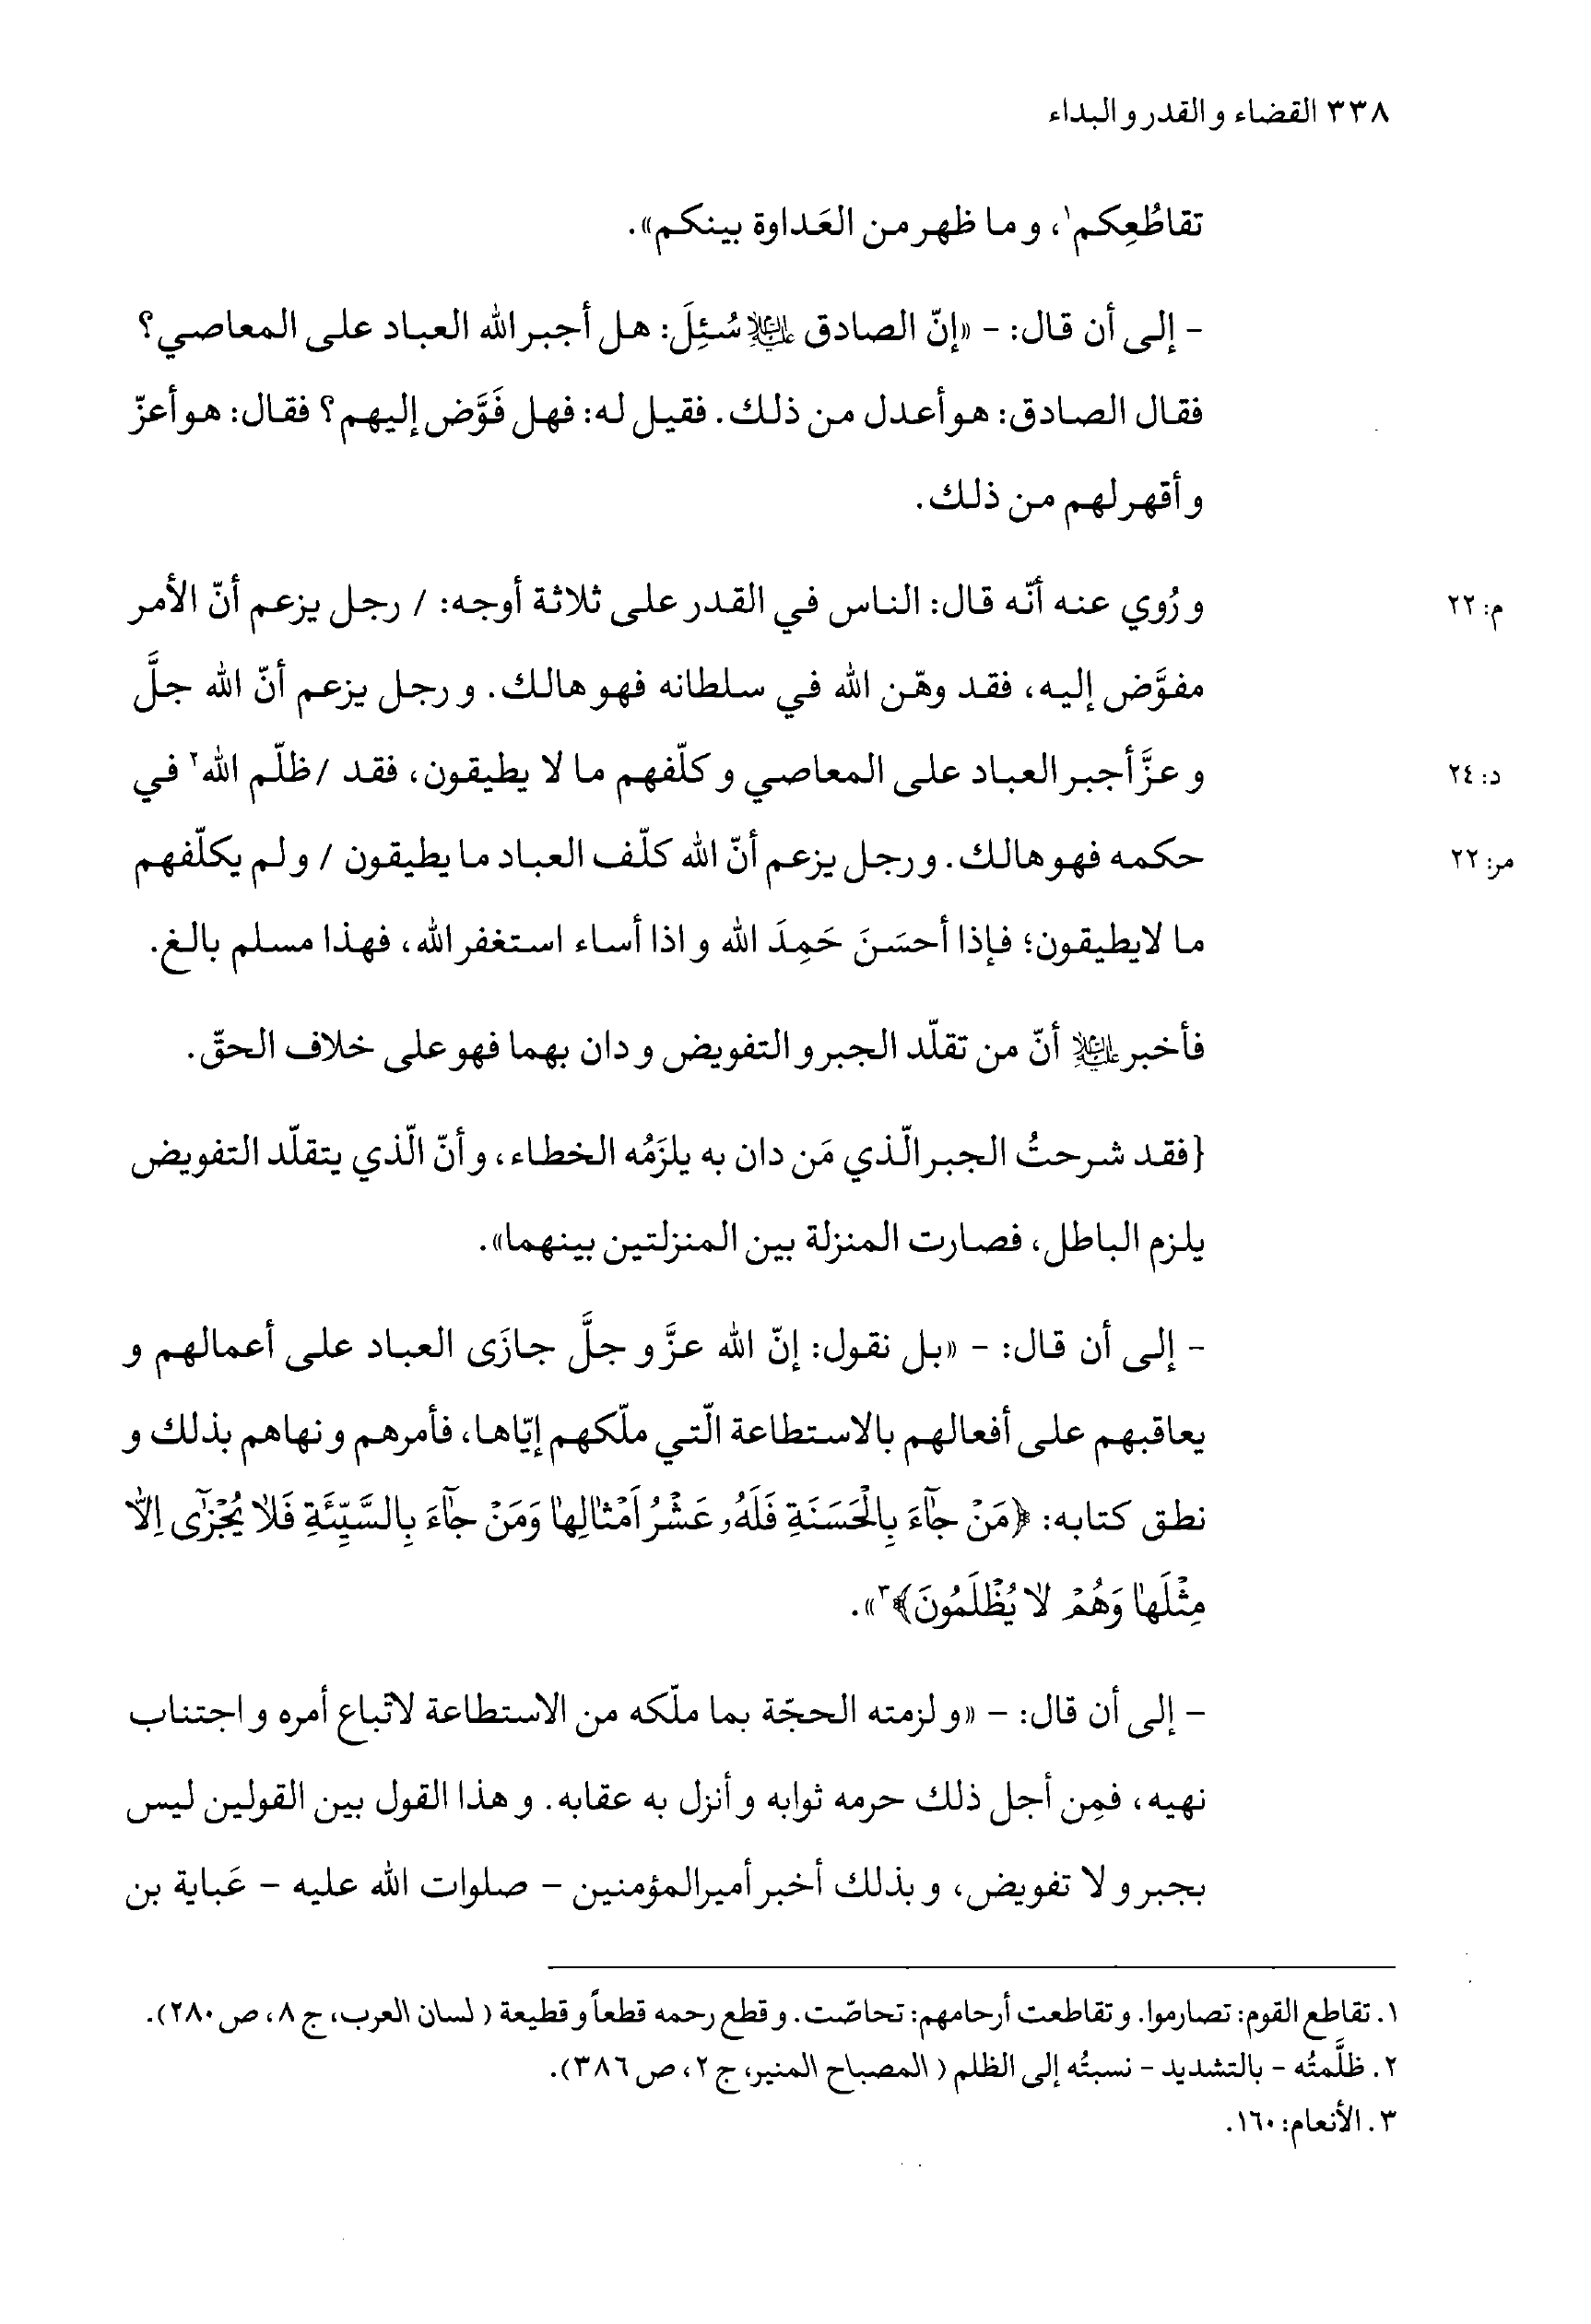 ٣٣٨ القضاء و القدر و البداء
تقاطُعِكم١، و ما ظهر من العَداوة بينكم».
- إلى أن قال: - «إنّ الصادق عليه السلام سُئِلَ: هل أجبر الله العباد على المعاصي؟
فقال الصادق: هو أعدل من ذلك. فقيل له: فهل فَوَّض إليهم؟ فقال: هو أعزّ
و أقهر لهم من ذلك.
و رُوي عنه أنّه قال: الناس في القدر على ثلاثة أوجه: / رجل يزعم أنّ الأمر
م: ٢٢
مفوَّض إليه، فقد وهّن الله في سلطانه فهو هالك. و رجل يزعم أنّ الله جلَّ
و عزَّ أجبر العباد على المعاصي و كلّفهم ما لا يطيقون، فقد / ظلّم الله٢ في
د: ٢٤
حكمه فهو هالك. و رجل يزعم أنّ الله كلّف العباد ما يطيقون / و لم يكلّفهم
مر: ٢٢
ما لايطيقون؛ فإذا أحسَنَ حَمِدَ الله و اذا أساء استغفر الله، فهذا مسلم بالغ.
فأخبر عليه السلام أنّ من تقلّد الجبر و التفويض و دان بهما فهو على خلاف الحقّ.
{فقد شرحتُ الجبر الّذي مَن دان به يلزَمُه الخطاء، و أنّ الّذي يتقلّد التفويض
يلزم الباطل، فصارت المنزلة بين المنزلتين بينهما».
- إلى أن قال: - «بل نقول: إنّ الله عزَّ و جلَّ جازَى العباد على أعمالهم و
يعاقبهم على أفعالهم بالاستطاعة الّتي ملّكهم إيّاها، فأمرهم و نهاهم بذلك و
نطق كتابه: ﴿مَنْ جٰٓاءَ بِالْحَسَنَةِ فَلَهُۥ عَشْرُ اَمْثالِهٰا وَمَنْ جٰٓاءَ بِالسَّيِّئَةِ فَلٰا يُجْزٰٓى اِلّٰا
مِثْلَهٰا وَهُمْ لٰا يُظْلَمُونَ﴾٣».
- إلى أن قال: - «و لزمته الحجّة بما ملّكه من الاستطاعة لاتّباع أمره و اجتناب
نهيه، فمِن أجل ذلك حرمه ثوابه و أنزل به عقابه. و هذا القول بين القولين ليس
بجبر و لا تفويض، و بذلك أخبر أميرالمؤمنين - صلوات الله عليه - عَباية بن
١. تقاطع القوم: تصارموا. و تقاطعت أرحامهم: تحاصّت. و قطع رحمه قطعاً و قطيعة ( لسان العرب، ج ٨، ص ٢٨٠).
٢. ظلَّمتُه - بالتشديد - نسبتُه إلى الظلم ( المصباح المنير، ج ٢، ص ٣٨٦).
٣. الأنعام: ١٦٠.